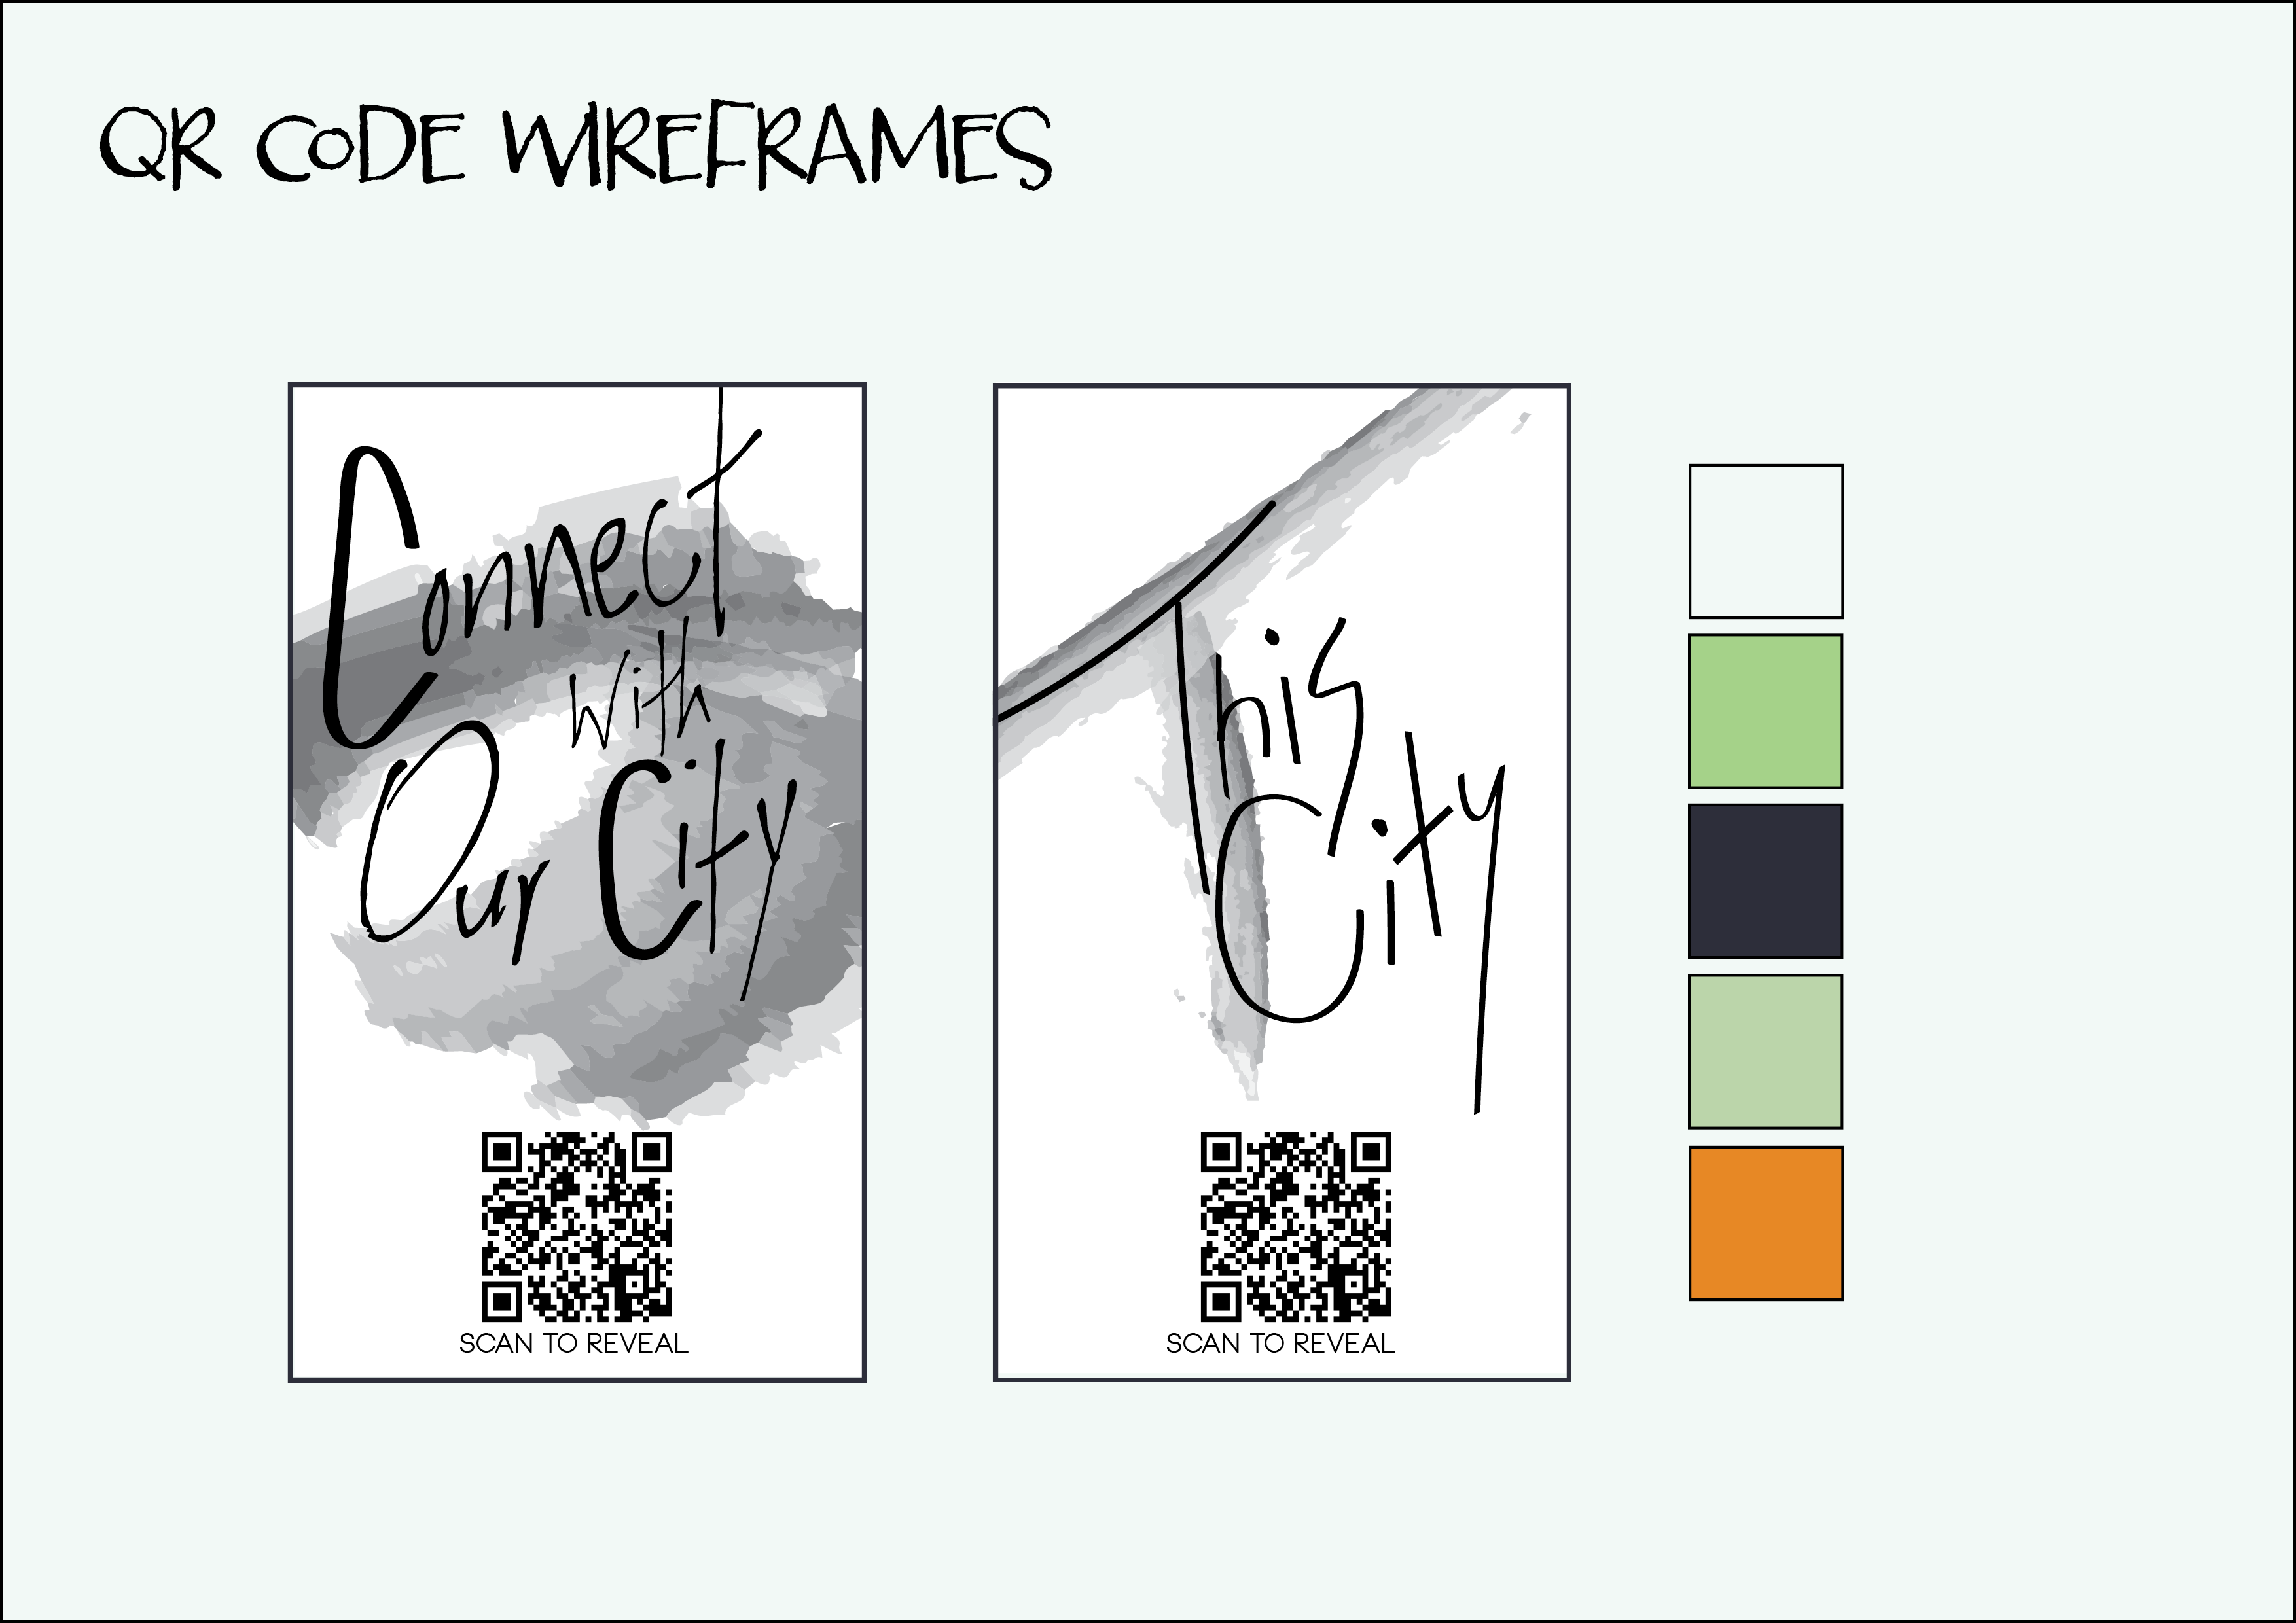 QR CODE WIREFRAMES
Connect
With
Our City
SCAN TO REVEAL
This
City
SCAN TO REVEAL